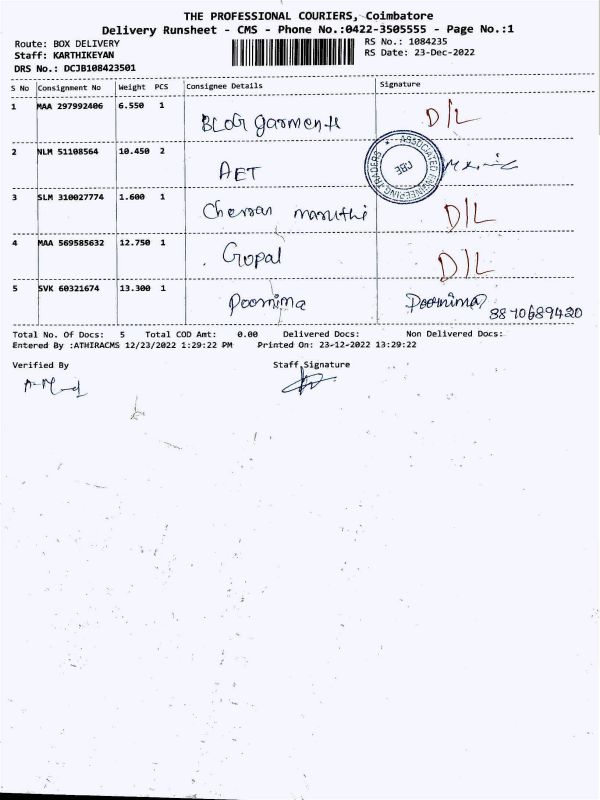 THE PROFESSIONAL COURIERS, Coimbatore
Delivery Runsheet - CMS - Phone No.:0422-3505555 - Page No.:1
Route: BOX DELIVERY RS No.: 1084235
Staff: KARTHIKEYAN RS Date: 23-Dec-2022
DRS No.: DCJB108423501
S No Consignment No Weight PCS Consignee Details Signature
1 MAA 297992406 6.550 1 BLOG garments D/L
2 NLM 51108564 10.450 2 AET ASSOCIATED ENGINEERING TRADERS CBE
3 SLM 310027774 1.600 1 Cheran maruthi D/L
4 MAA 569585632 12.750 1 Gopal D/L
5 SVK 60321674 13.300 1 Poornima Poornima
8870689420
Total No. Of Docs: 5 Total COD Amt: 0.00 Delivered Docs: Non Delivered Docs:
Entered By :ATHIRACMS 12/23/2022 1:29:22 PM Printed On: 23-12-2022 13:29:22
Verified By Staff Signature